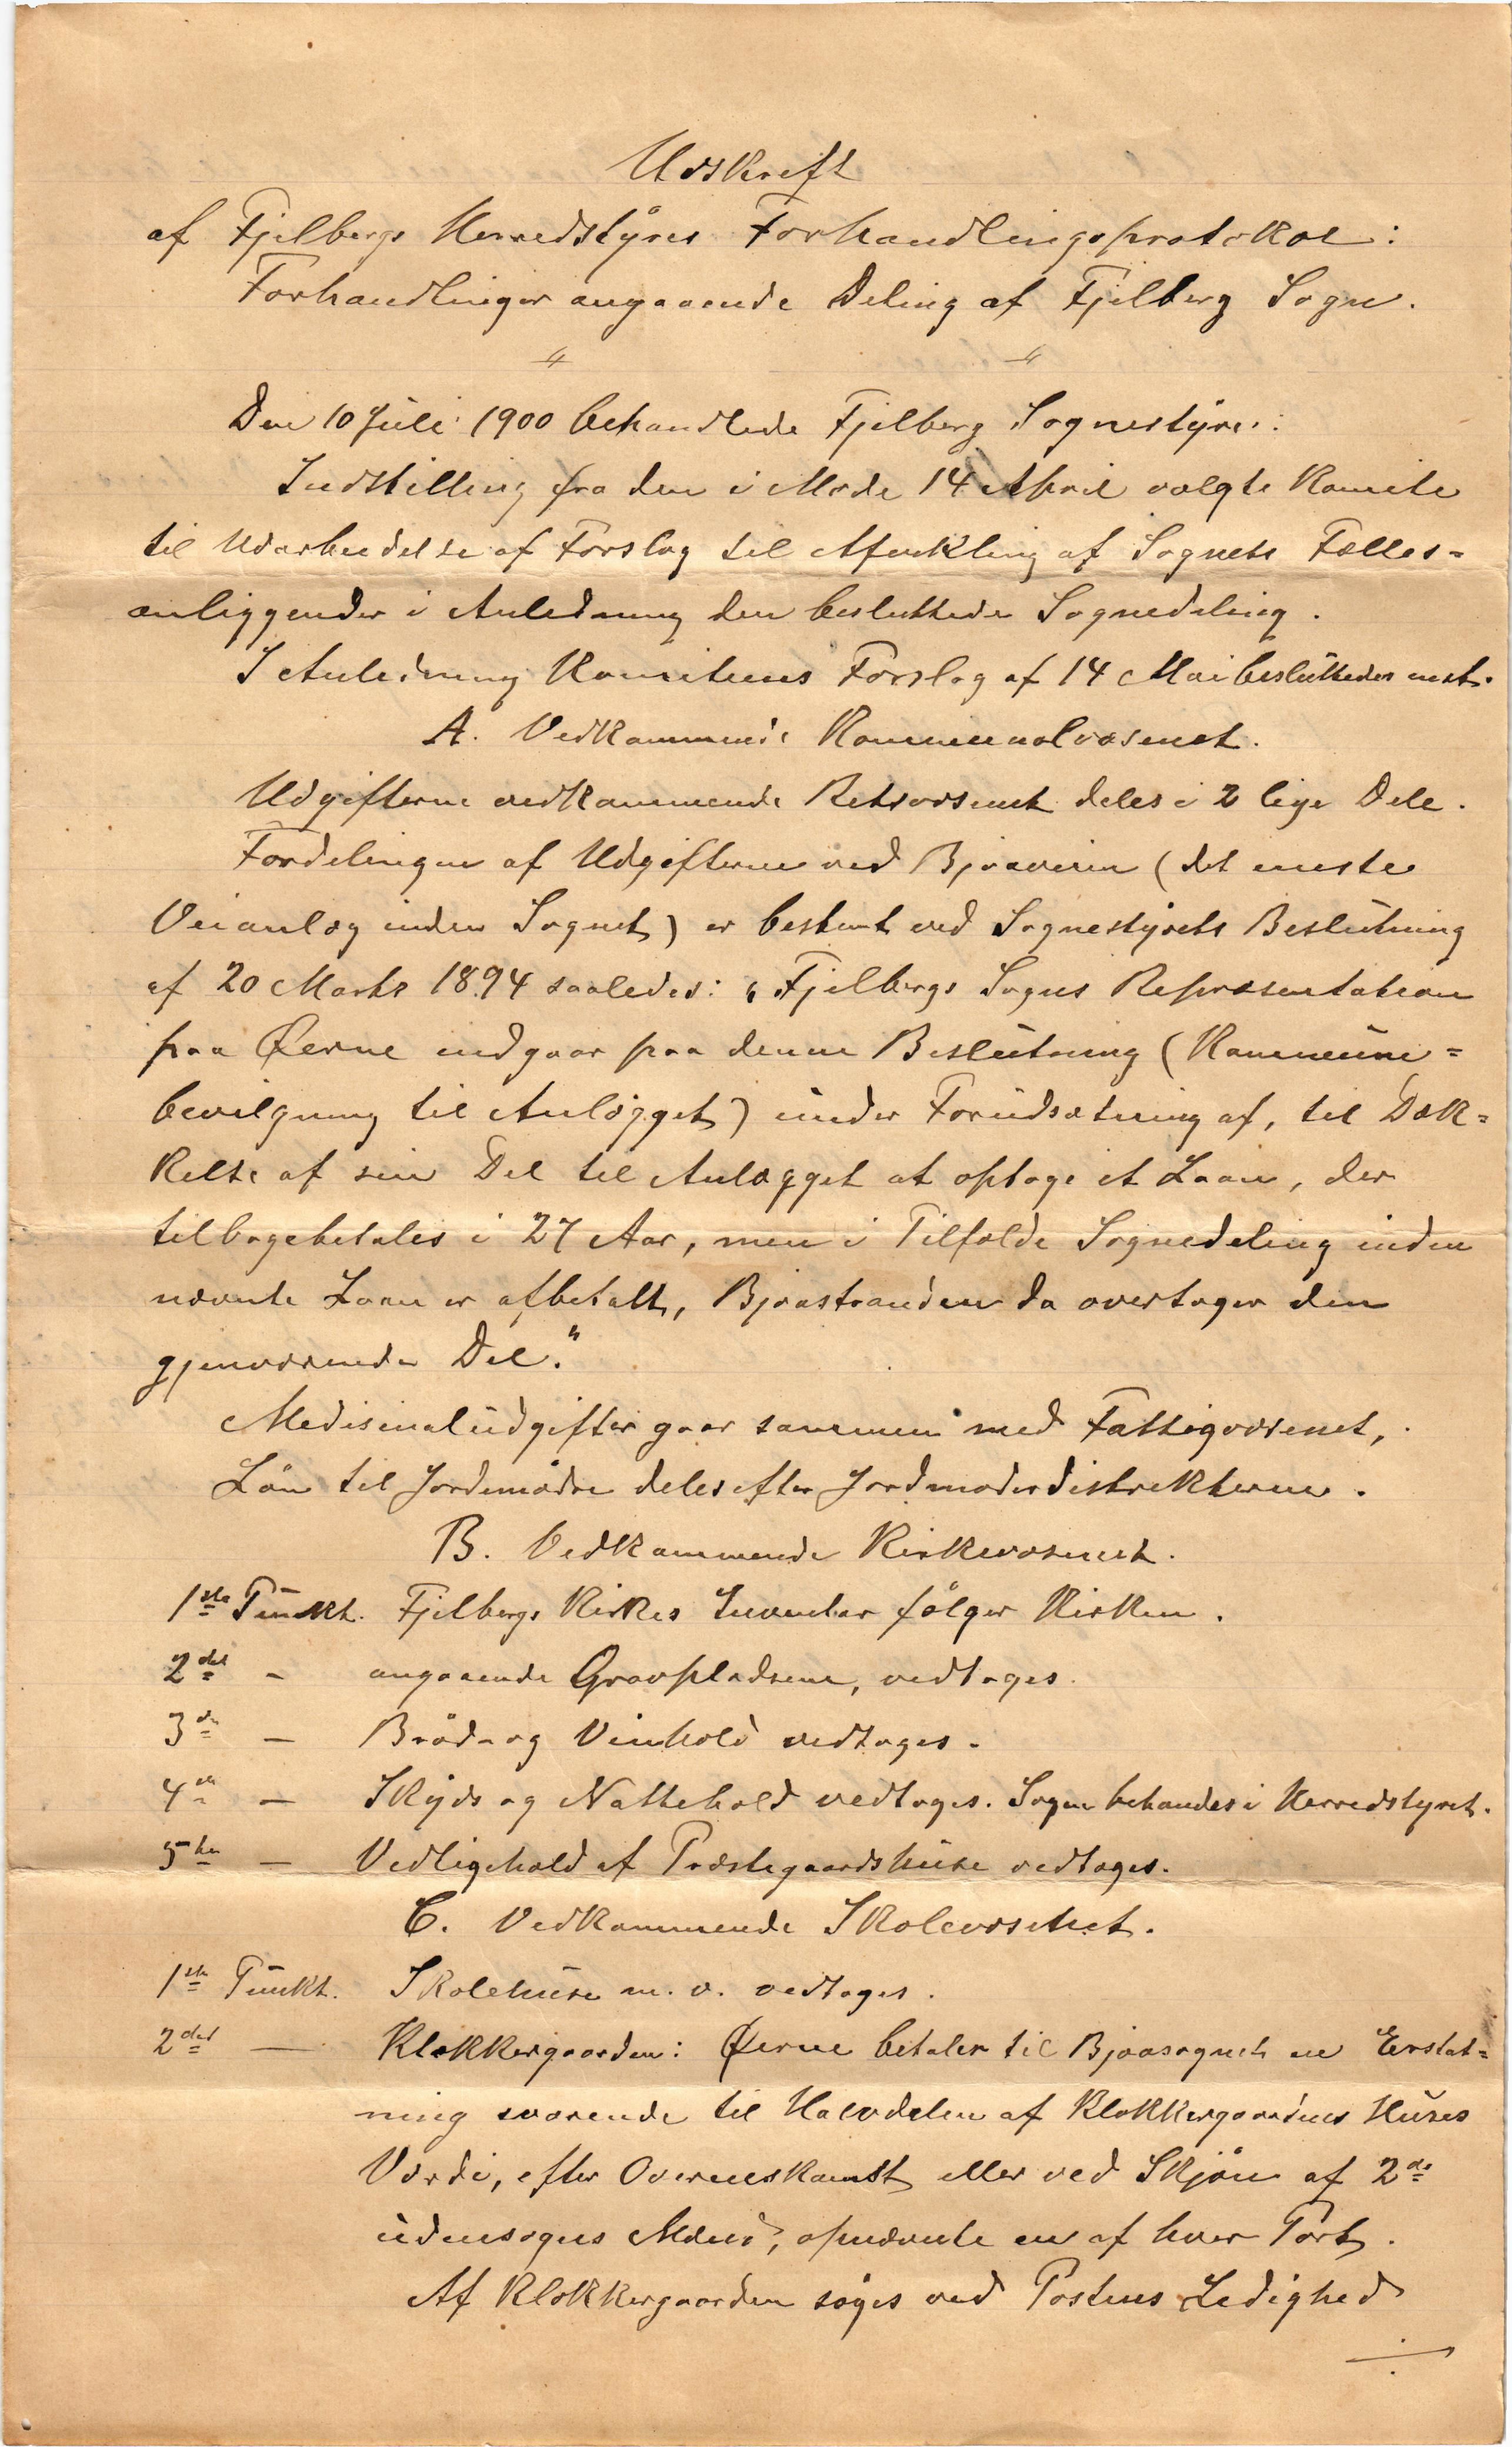 Udskrift
af Fjelbergs Herredstyres Forhandlingsprotokol:
Forhandlinger angaaende Deling af Fjelberg Sogn.
Den 10 Juli 1900 behandlede Fjelberg Sognestyre:
Indstilling fra den i Møde 14 April valgte Komite
til Udarbeidelse af Forslag til Afvikling af Sognets Fælles=
anliggender i Anledning den besluttede Sognedeling.
I Anledning Komiteens Forslag af 14 Mai besluttedes enst.
A. Vedkommende Kommunalvæsenet.
Udgifterne vedkommende Retsvæsenet deles i 2 lige Dele.
Fordelingen af Udgifterne ved Bjoaveien (det eneste
Veianlæg inden Sognet) er bestemt ved Sognestyrets Beslutning
af 20 Marts 1894 saaledes: "Fjelbergs Sogns Repræsentation
paa Øerne indgaar paa denne Beslutning (Kommune=
bevilgning til Anlægget) under Forudsætning af, til Dæk=
kelse af sin Del til Anlægget at optage et Laan, der
tilbagebetales i 27 Aar, men i Tilfælde Sognedeling inden
nævnte Laan er afbetalt, Bjoastranden da overtager den
gjenværende Del."
Medisinaludgifter gaar sammen med Fattigvæsenet,
Løn til Jordemødre deles efter Jordmoderdistrikterne.
B. Vedkommende Kirkevæsenet.
1ste Punkt. Fjelbergs Kirkes Inventar følger Kirken.
2det - angaaende Gravpladsene, vedtages.
3die - Brød- og Vinhold vedtages.
4de - Skyds og Nattehold vedtages. Sagen behandles i Herredstyret.
5te - Vedligehold af Præstegaardshuse vedtages.
C. Vedkommende Skolevæsenet.
1ste Punkt. Skolehuse m. v. vedtages.
2det - Klokkergaarden: Øerne betaler til Bjoasognet en Erstat=
ning svarende til Halvdelen af Klokkergaardens Huses
Værdi, efter Overenskomst eller ved Skjøn af 2de
udensogns Mænd, opnævnte en af hver Part.
Af Klokkergaarden søges ved Postens Ledighed